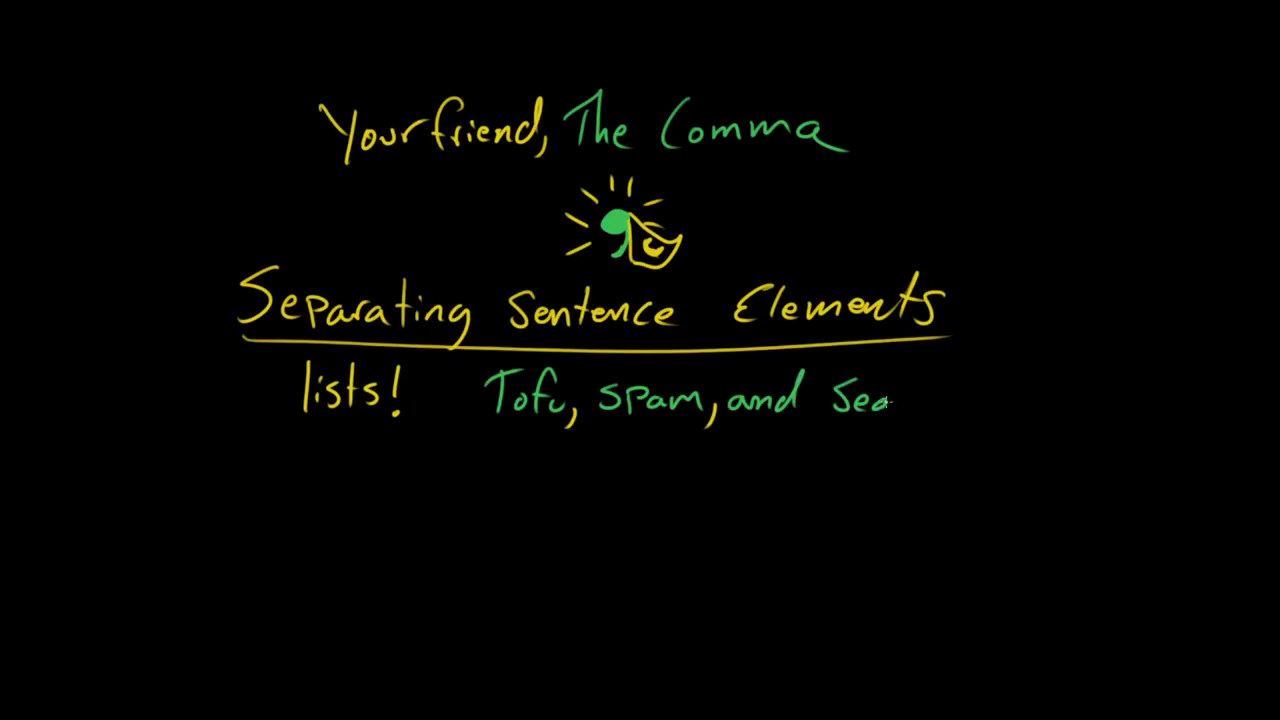 Your friend, The Comma
Separating Sentence Elements
lists! Tofu, spam, and sea